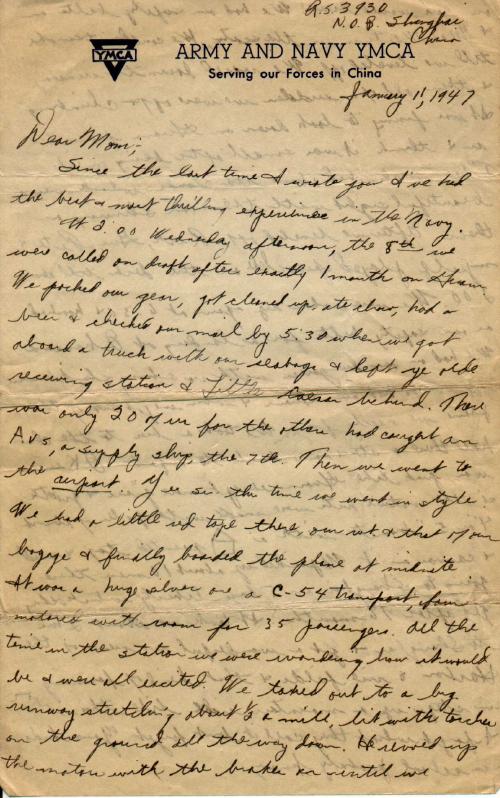 R.S. 3930
N.O.B. Shanghai
China
YMCA
ARMY AND NAVY YMCA
Serving our Forces in China
January 11, 1947
Dear Mom;
Since the last time I wrote you I've had
the best & most thrilling experience in the Navy.
At 2:00 Wednesday afternoon, the 8th we
were called on draft after exactly 1 month on Guam.
We packed our gear, got cleaned up, ate chow, had a
beer & checked our mail by 5:30 when we got
aboard a truck with our seabags & left ye olde
receiving station & Little Caesar behind. There
was only 20 of us for the other had caught an
AVS, a supply ship, the 7th. Then we went to
the airport. Yes sir this time we went in style
We had a little red tape there, our wt. & that of our
bagage & finally boarded the plane at midnite
It was a huge silver one a C-54 transport, four
motored with room for 35 passengers. All the
time in the station we were wondering how it would
be & were all excited. We taxied out to a big
runway stretching about ½ a mile, lit with torches
on the ground all the way down. He revved up
the motors with the brakes on until we